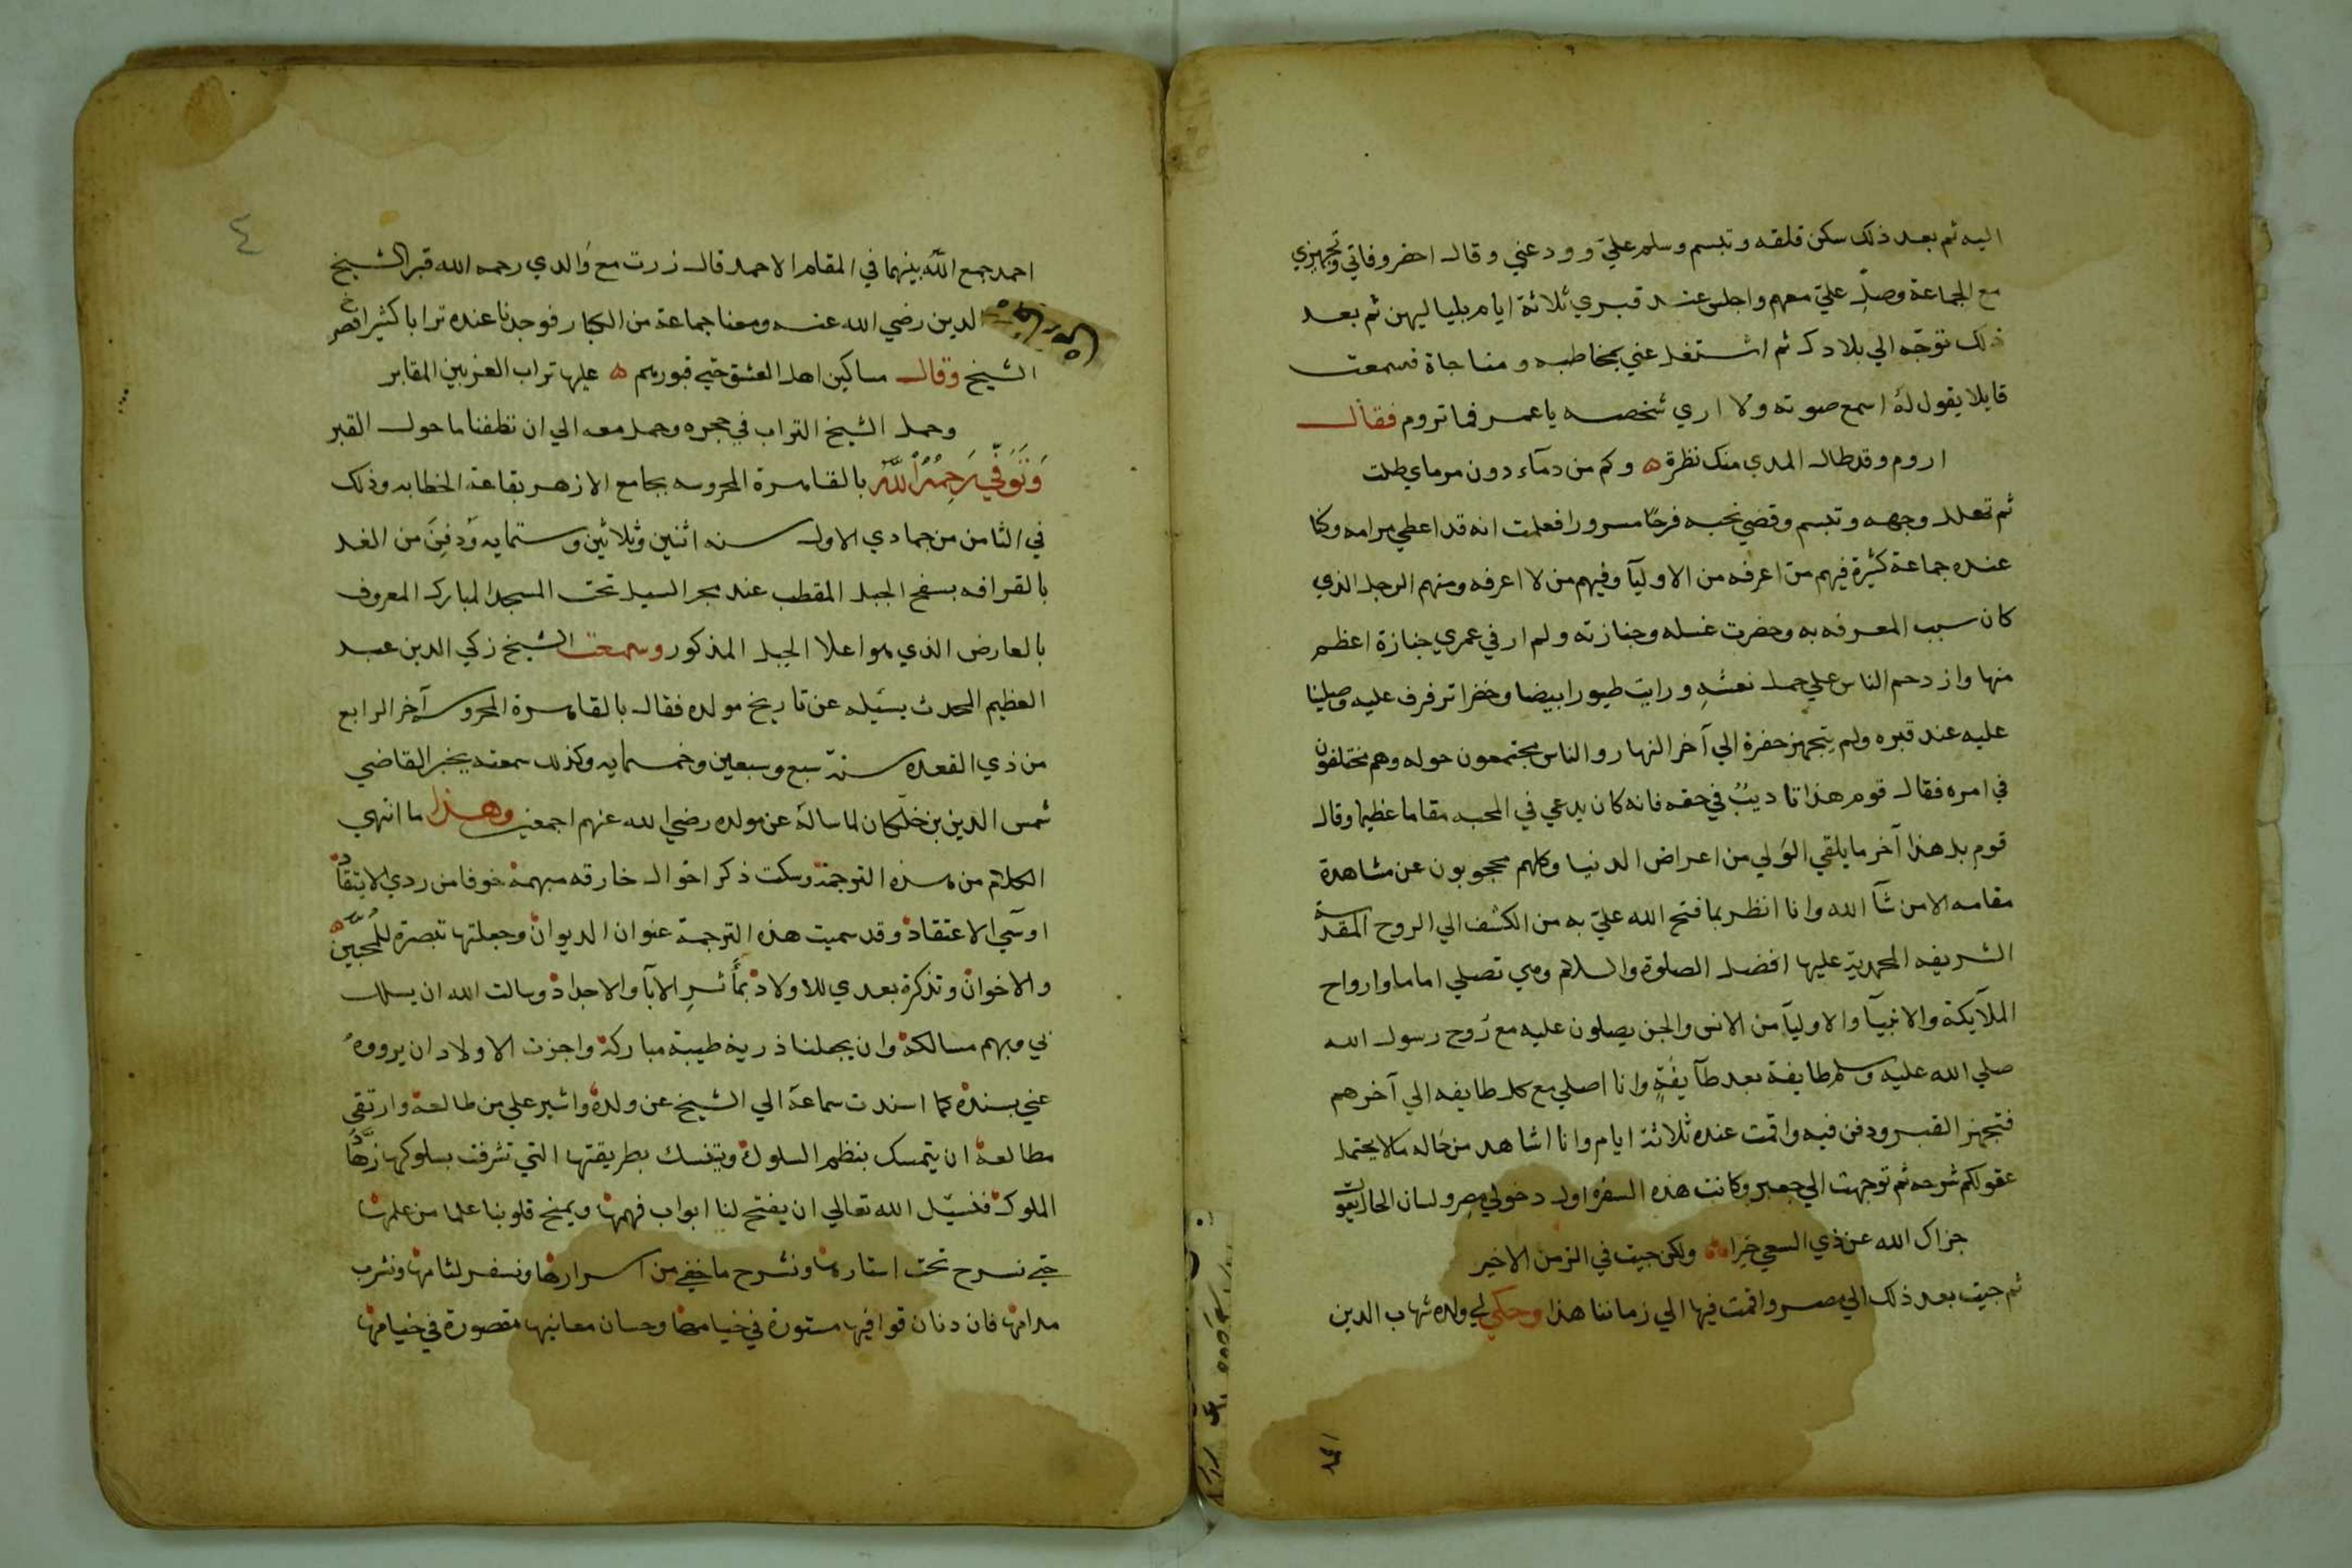 اليه ثم بعد ذلك سكن قلقه وتبسم وسلم عليّ وودعني وقال احضر وفاتي وتجهيزي
مع الجماعة وصلِّ عليّ معهم واجلس عند قبري ثلاثة ايام بلياليهن ثم بعد
ذلك توجّه الي بلادك ثم اشتغل عني بمخاطبه ومناجاة فسمعت
قايلا يقول لهُ اسمع صوته ولا اري شخصه ياعمر فما تروم فقال
اروم وقد طال المدي منك نظرة ه وكم من دمآء دون مرماي طلت
ثم تهلل وجهه وتبسم وقضي نحبه فرحًا مسرورا فعلمت انه قد اعطي مرامه وكنا
عنده جماعة كثيرة فيهم من اعرفه من الاوليآ وفيهم من لا اعرفه ومنهم الرجل الذي
كان سبب المعرفه به وحضرت غسله وجنازته ولم ار في عمري جنازة اعظم
منها وازدحم الناس علي حمل نعشهِ ورايت طيورا بيضا وخضرا ترفرف عليه وصلينا
عليه عند قبره ولم يتجهز حفرة الي آخر النهار والناس مجتمعون حوله وهم مختلفون
في امره فقال قوم هذا تاديبٌ في حقه فانه كان يدعي في المحبه مقاما عظيما وقال
قوم بل هذا آخر ما يلقي الوَلي من اعراض الدنيا وكلهم محجوبون عن مشاهدة
مقامه الا من شآ الله وانا انظر بما فتح الله عليّ به من الكشف الي الروح المقدسة
الشريفه المحمدية عليها افضل الصلوة والسلام وهي تصلي اماما وارواح
الملآيكة والانبيآ والاوليآ من الانس والجن يصلون عليه مع رُوح رسول الله
صلي الله عليه وسلم طايفة بعد طآيفةٍ وانا اصلي مع كل طايفه الي آخرهم
فتجهز القبر ودفن فيه واقمت عنده ثلاثة ايام وانا اشاهد من حاله مالا يحتمل
عقولكم شرحه ثم توجهت الي جعبر وكانت هذه السفرة اول دخولي مصر ولسان الحال يقول
جزاك الله عن ذي السعي خيرا ولكن جيت في الزمن الاخير
ثم جيت بعد ذلك الي مصر واقمت فيها الي زماننا هذا وحكي لي ولده شهاب الدين
احمد جمع اللّه بينهما في المقام الاحمد قال زرت مع وَالدي رحمه الله قبر الشيخ
الدين رضي الله عنه ومعنا جماعة من الكبار فوجدنا عنده ترابا كثيرا
الشيخ وقال مساكين اهل العشق حتي قبورهم ه عليها تراب العز بين المقابر
وحمل الشيخ التراب في حجره وحمل معه الي ان نظفنا ما حول القبر
وَتَوَفّي رَحِمُهُ اللّٰهُ بالقاهرة المحروسه بجامع الازهر بقاعة الخطابه وذلك
في الثامن من جمادي الاول سنه اثنين وثلاثين وستمايه وَدفِنَ من الغد
بالقرافه بسفح الجبل المقطب عند مجر السيل تحت المسجد المبارك المعروف
بالعارض الذي هو اعلا الجبل المذكور وسمعت الشيخ زكي الدين عبد
العظيم المحدث يسَيله عن تاريخ مولده فقال بالقاهرة المحروسه آخر الرابع
من ذي القعده سنة سبع وسبعين وخمسمايه وكذلك سمعته يخبر القاضي
شمس الدين بن خلّكان لما سالهُ عن مولده رضي الله عنهم اجمعين وهذا ما انتهي
الكلام من هذه الترجمة وسكت ذكر احوال خارقه مبهمة خوفا من ردي الانتقاد
اوسَي الاعتقاد وقد سميت هذه الترجمة عنوان الديوان وجعلتها تبصرة للمُحبّين
والاخوان وتذكرة بعدي للاولاد بمأثرِ الابآ والاجداد وسالت الله ان يسلك
بي وبهم مسالكه وان يجعلنا ذرية طيبة مباركة واجزت الاولاد ان يرووهُ
عني بسنده كما اسندت سماعهَ الي الشيخ عن ولده واشير علي من طالعه وارتقي
مطالعهُ ان يتمسك بنظم السلوك ويتنسك بطريقتها التي تشرفت بسلوكها زهّاد
الملوك فنسيَل الله تعالي ان يفتح لنا ابواب فهمها ويمنح قلوبنا علما من علمها
حتي نسرح تحت استارها ونشرح ما خفي من اسرارها ونسفر لثامها ونشرب
مدامها فان دنان قوافيها مستورة في ختامها وحسان معانيها مقصورة في خيامها
٤